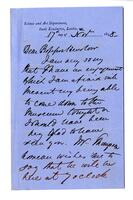 Science and Art Department,
South Kensington, London.
17th Novr 18
Dear Professor
I am very sorry
that I have an engagement
which I am afraid will
prevent my being able
to come down to the
Museum tonight or
I should have been
very glad to have
seen you. Mr
wishes me to
say that he will be
here at 7 o'clock